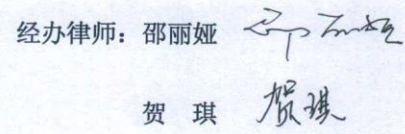 经办律师：邵丽娅 邵丽娅
贺 琪 贺琪